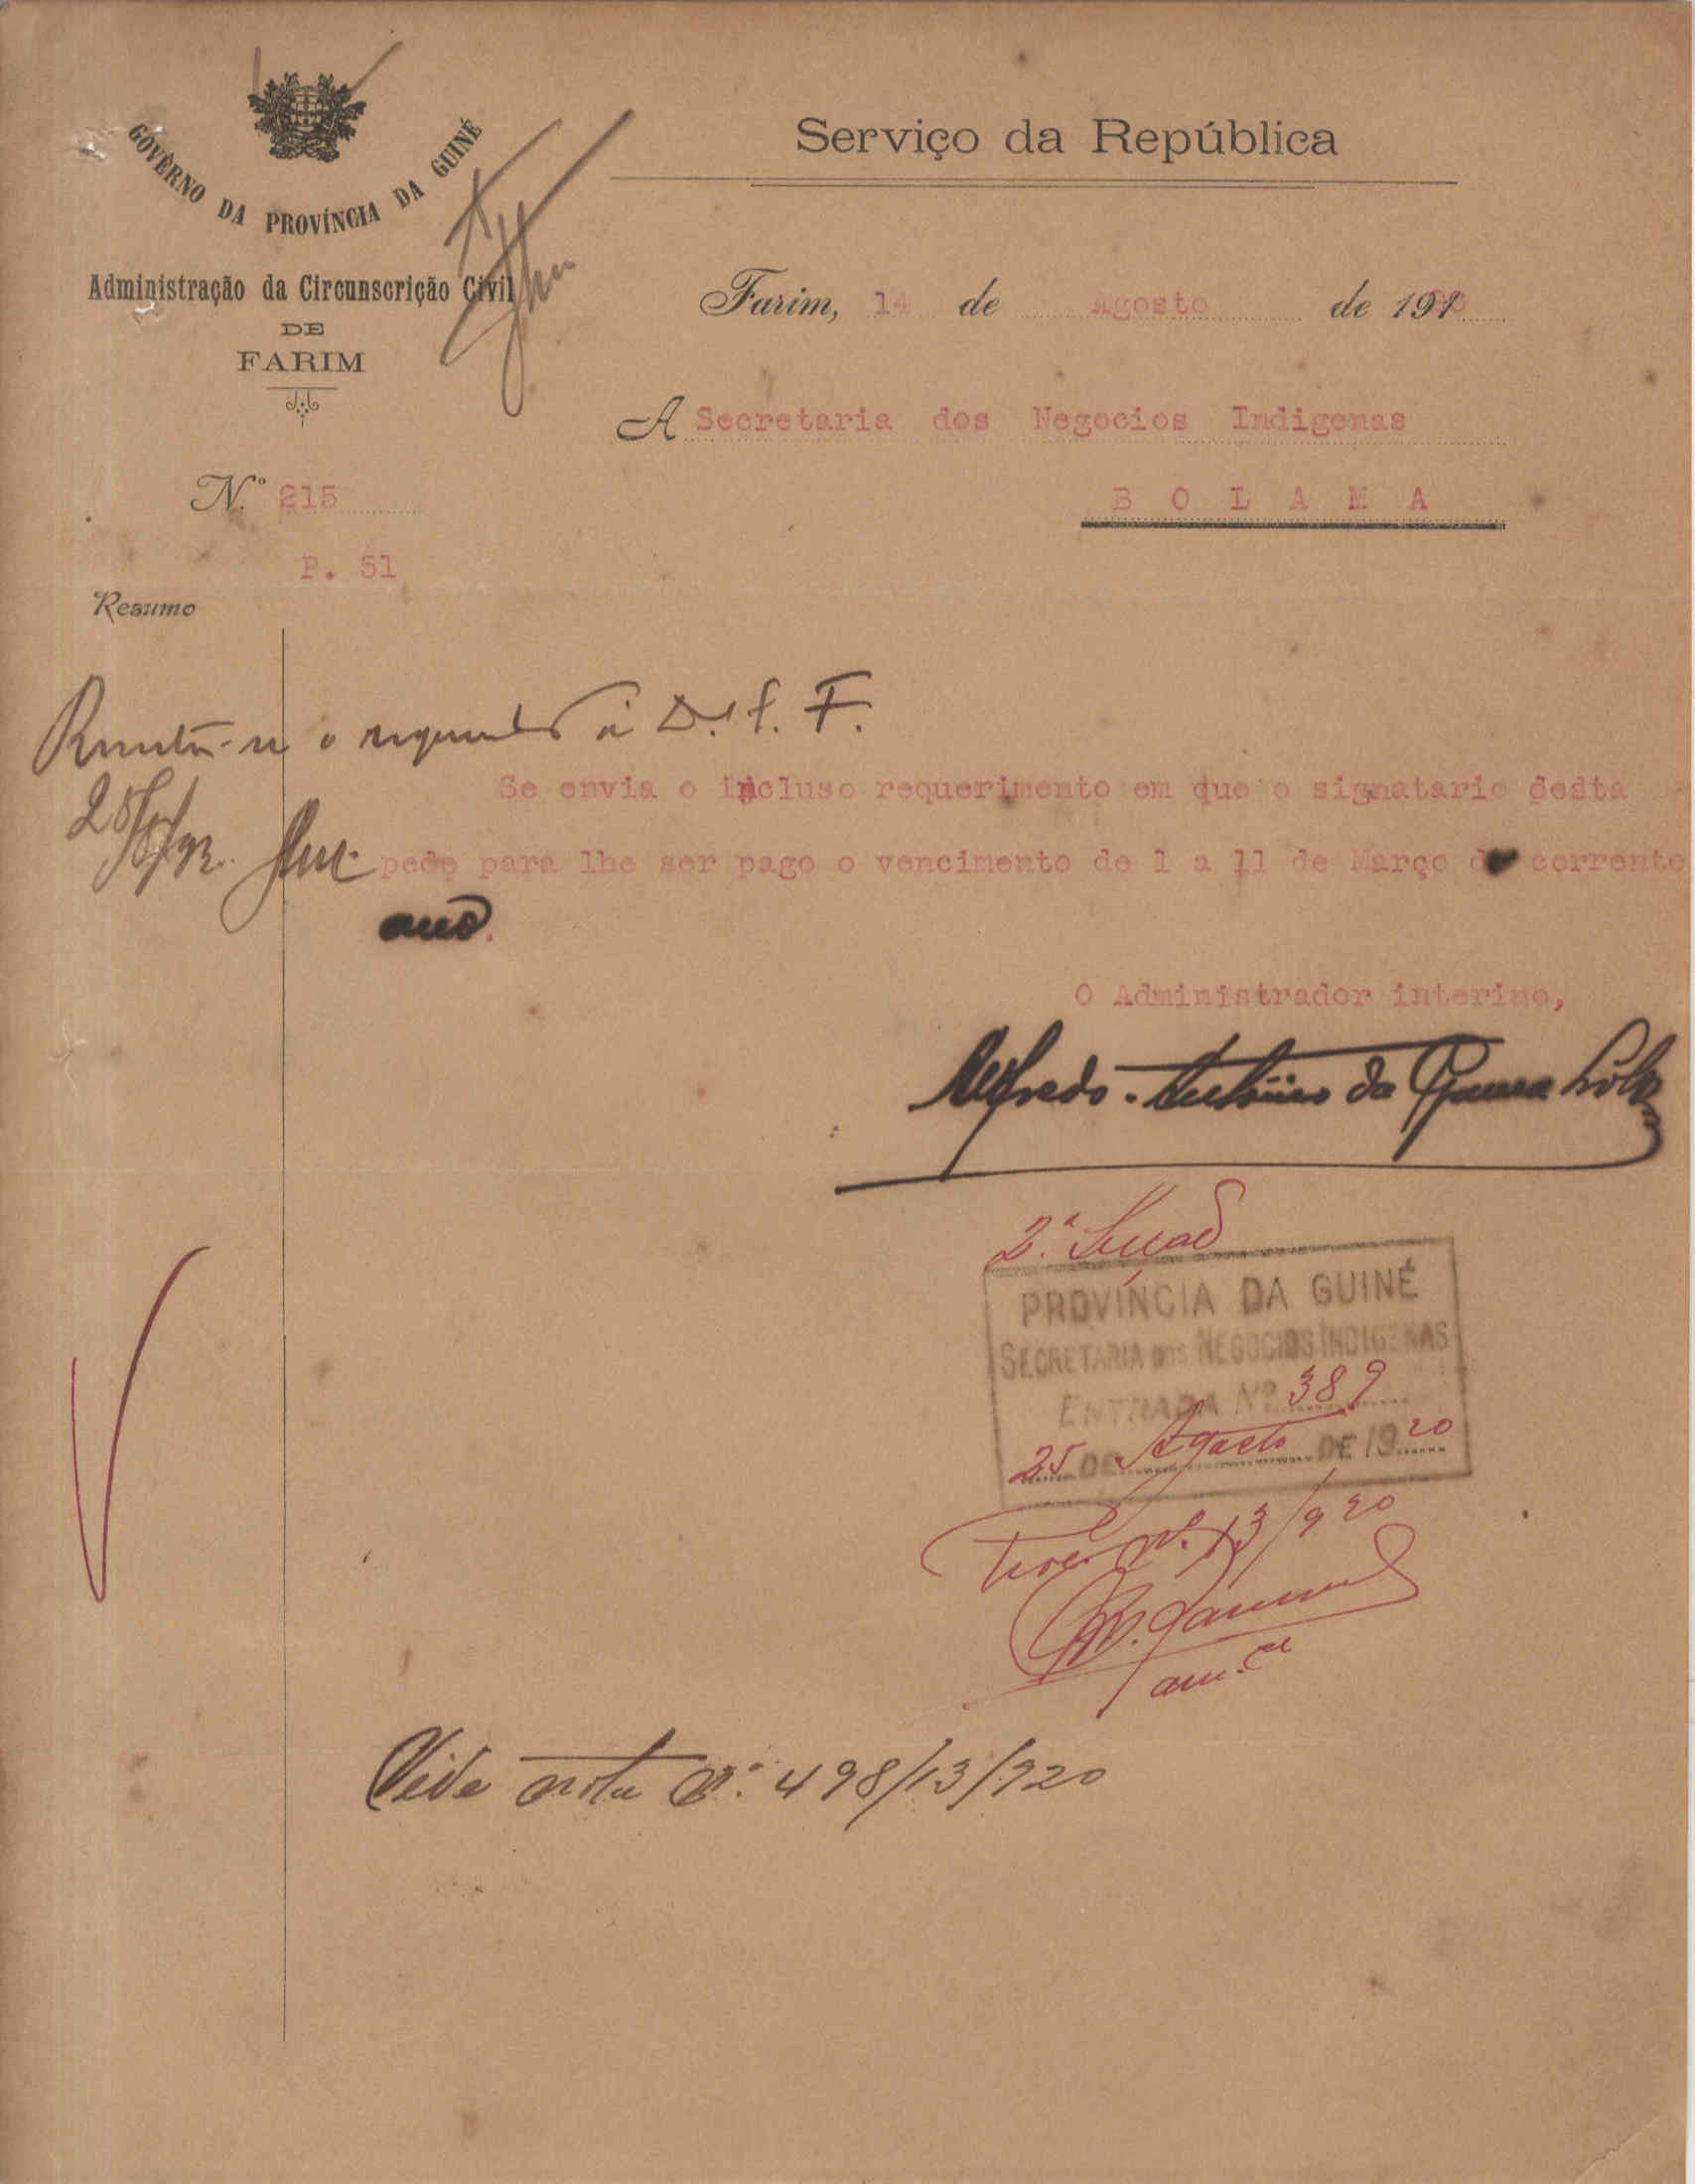 GOVÊRNO DA PROVÍNCIA DA GUINÉ
Administração da Circunscrição Civil
DE
FARIM
Serviço da República
Farim, 14 de Agosto de 1920
A Secretaria dos Negocios Indigenas
B O L A M A
N.º 215
P. 51
Resumo
Remeta-se o requerimento à D. S. F.
Se envia o incluso requerimento em que o signatario desta
pede para lhe ser pago o vencimento de 1 a 11 de Março do corrente
ano.
O Administrador interino,
Alfredo Antonio da Gama
2.ª Secção
PROVÍNCIA DA GUINÉ
SECRETARIA DOS NEGOCIOS INDIGENAS
ENTRADA Nº 389
25 DE Agosto DE 1920
Proc. nº 13/920
Vide nota nº 498/13/920